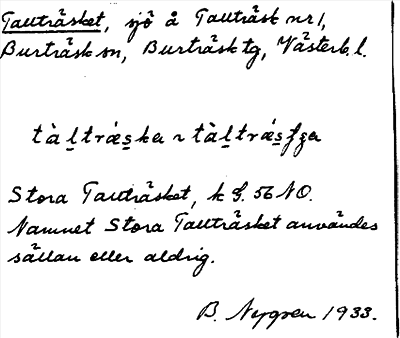 Tallträsket, sjö å Tallträsk nr 1,
Burträsk sn, Burträsk tg, Västerb. l.
tàltræ̀ska ~ tàltrǽsʃʒa
Stora Tallträsket, k G. 56 NO.
Namnet Stora Tallträsket användes
sällan eller aldrig.
B. Nygren 1933.